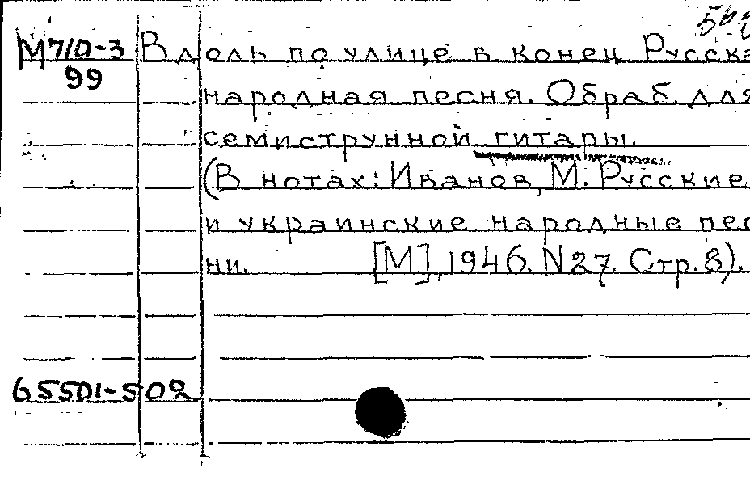 М710-3 Вдоль по улице в конец Русска
99
народная песня. Обраб для
семиструнной гитары.
(В нотах: Иванов, М. Русские
и украинские народные пес
ни. [М], 1946. N27. Стр. 8).
65501-502